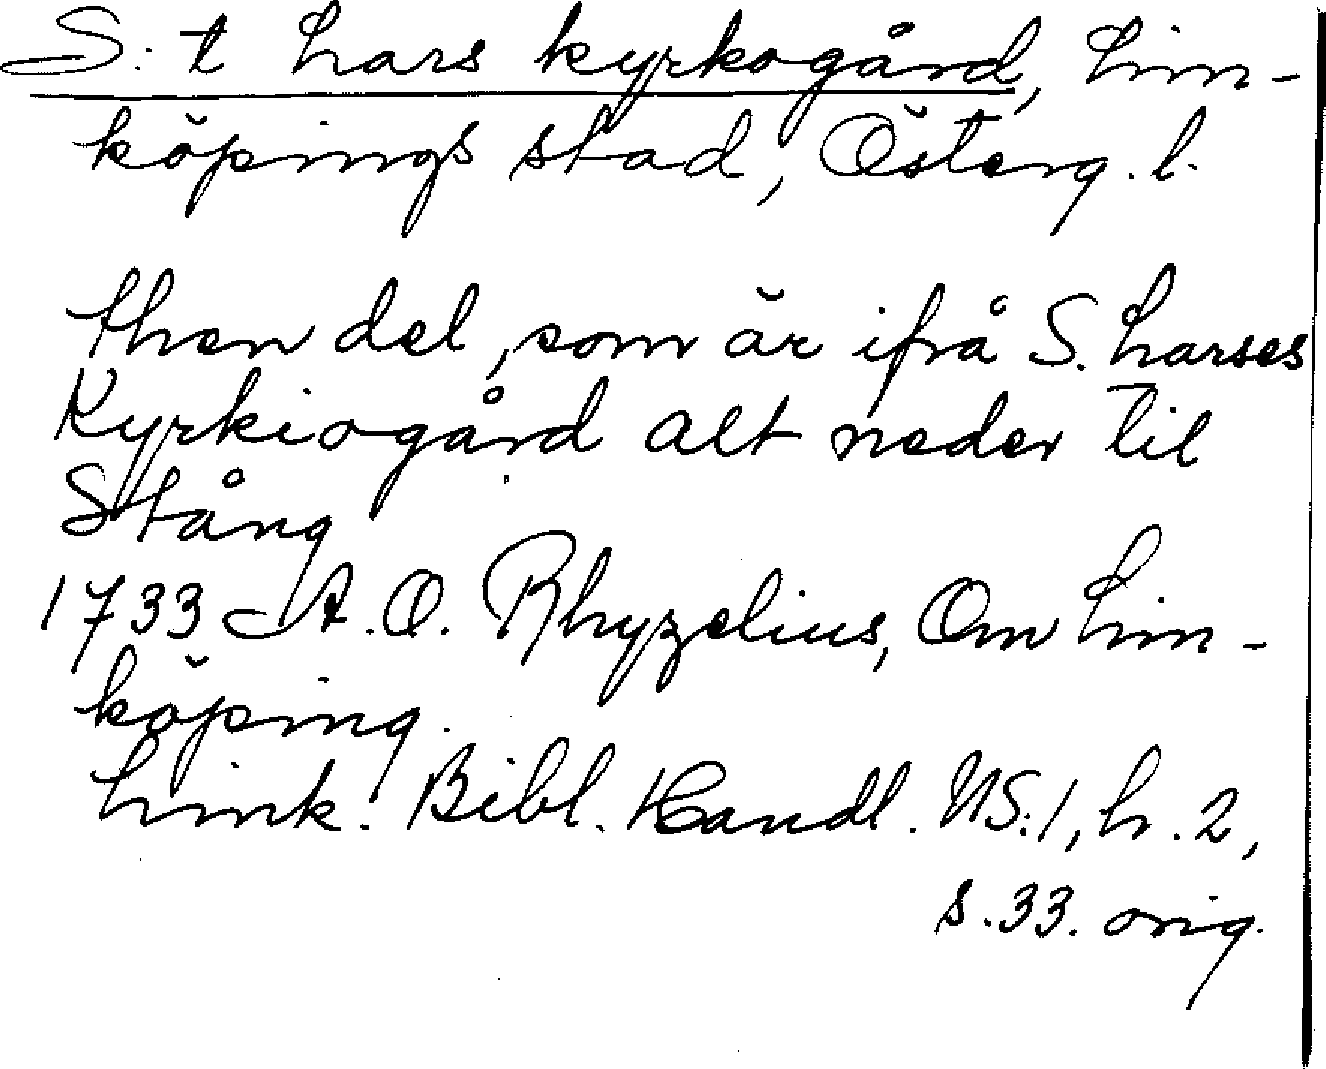 S:t Lars kyrkogård, Lin-
köpings stad, Österg. l.
then del, som är ifrå S. Larses
Kyrkiogård alt neder til
Stång
1733 A. O. Rhyzelius, Om Lin-
köping.
Link. Bibl. Handl. NS:1, h. 2,
s. 33. orig.